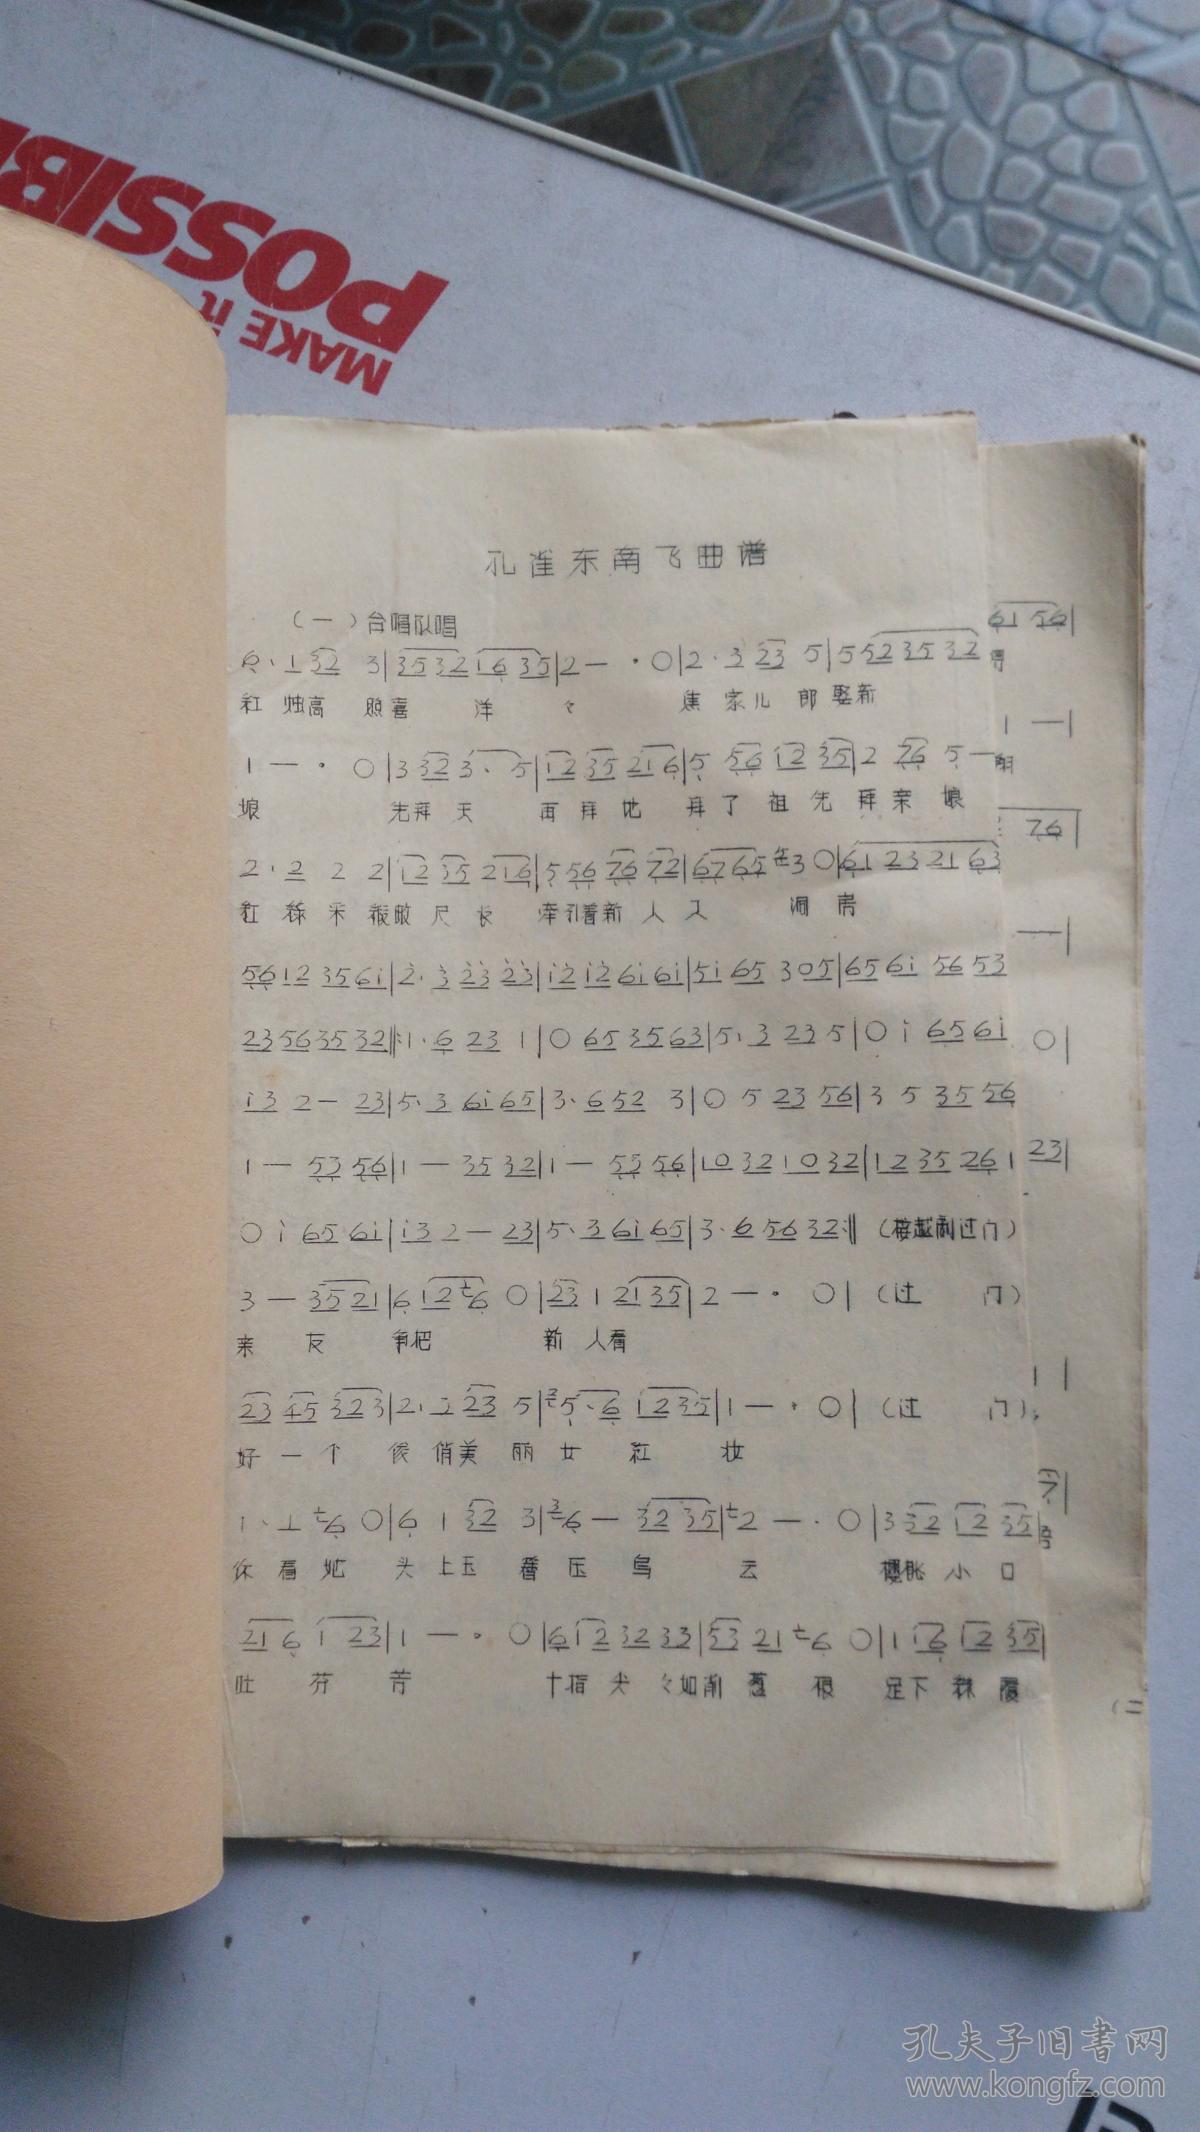 MAKE it
POSSIB
孔雀东南飞曲谱
（一）合唱队唱
6·1 32 3|35 32 16 35|2 — · 0|2·3 23 5|5 52 35 32
红烛高 照喜 洋 々 焦家儿 郎娶新
1 — · 0|3 32 3· 5|12 35 21 6|5 56 12 35|2 76 5 —
娘 先拜天 再拜地 拜了祖先拜亲娘
2·2 2 2|12 35 21 6|5 56 76 72|67 65 3 0|61 23 21 63
红绿采 丈长 牵引着新人入 洞房
56 12 35 61|2·3 23 23|12 12 61 61|51 65 3 05|65 61 56 53
23 56 35 32‖:1·6 23 1|0 65 35 63|5·3 23 5|0 i 65 6i
i3 2 — 23|5·3 6i 65|3·6 52 3|0 5 23 56|3 5 35 56
1 — 53 56|1 — 35 32|1 — 55 56|10 32 10 32|12 35 26 1
0 i 65 6i|i3 2 — 23|5·3 6i 65|3·6 56 32:‖（接越剧过门）
3 — 35 21|6 12 6 0|23 1 21 35|2 — · 0|（过 门）
亲 友 争把 新 人看
23 45 32 3|2·3 23 5|5·6 12 35|1 — · 0|（过 门）
好一个 俊俏美丽女红 妆
1·1 6 0|6 1 32 3|6 — 32 35|2 — · 0|3 32 12 35
你看她 头上玉 压乌 云 樱桃小口
21 6 1 23|1 — · 0|61 2 32 33|53 21 6 0|1 16 12 35|
吐 芬 芳 十指尖々如 葱 根 足下 履
61 56|
1 —|
76|
—|
0|
23|
1|
7|
（二
孔夫子旧书网
www.kongfz.com